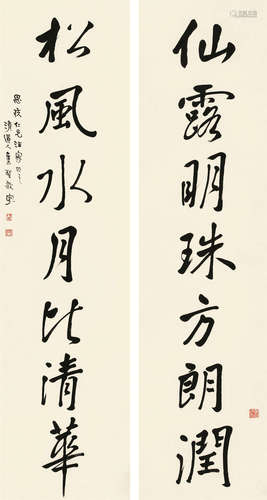 仙露明珠方朗潤
松風水月比清華